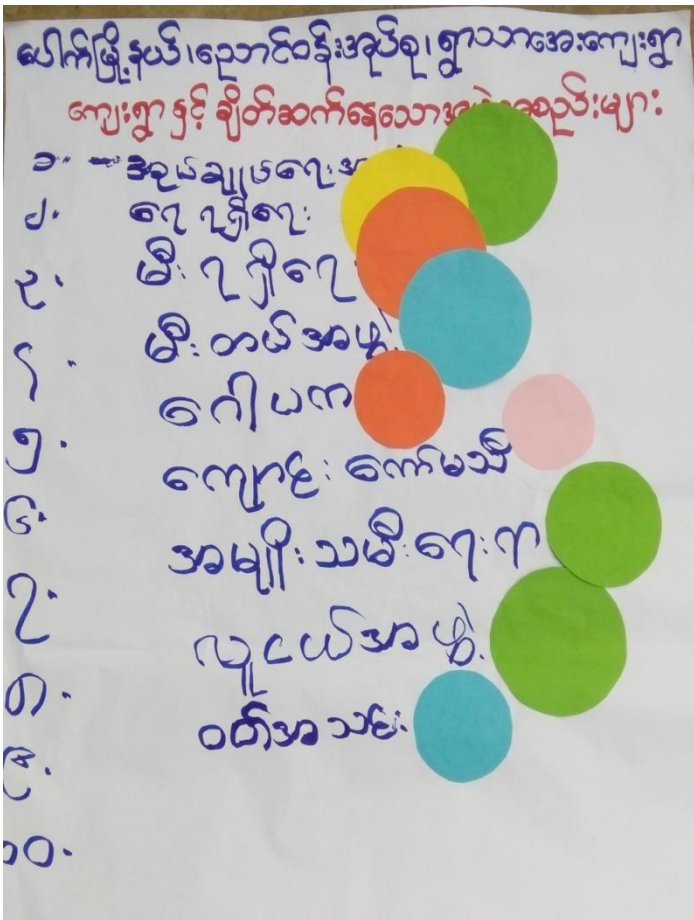 ပေါက်မြို့နယ်၊ညောင်ဝန်းအုပ်စု၊ရွာသာအေးကျေးရွာ
ကျေးရွာ နှင့် ချိတ်ဆက်နေသော အစည်းများ
၁။
၂. ရေ ရရှိရေး
၃. မီး ရရှိရေး
၄. မီး တယ်အဖွဲ့
၅. ဂေါပက
၆. ကျောင်း ကော်မတီ
၇. အမျိုးသမီးရေးရာ
၈. လူငယ်အဖွဲ့
၉. ဝတ်အသင်း
၁၀.